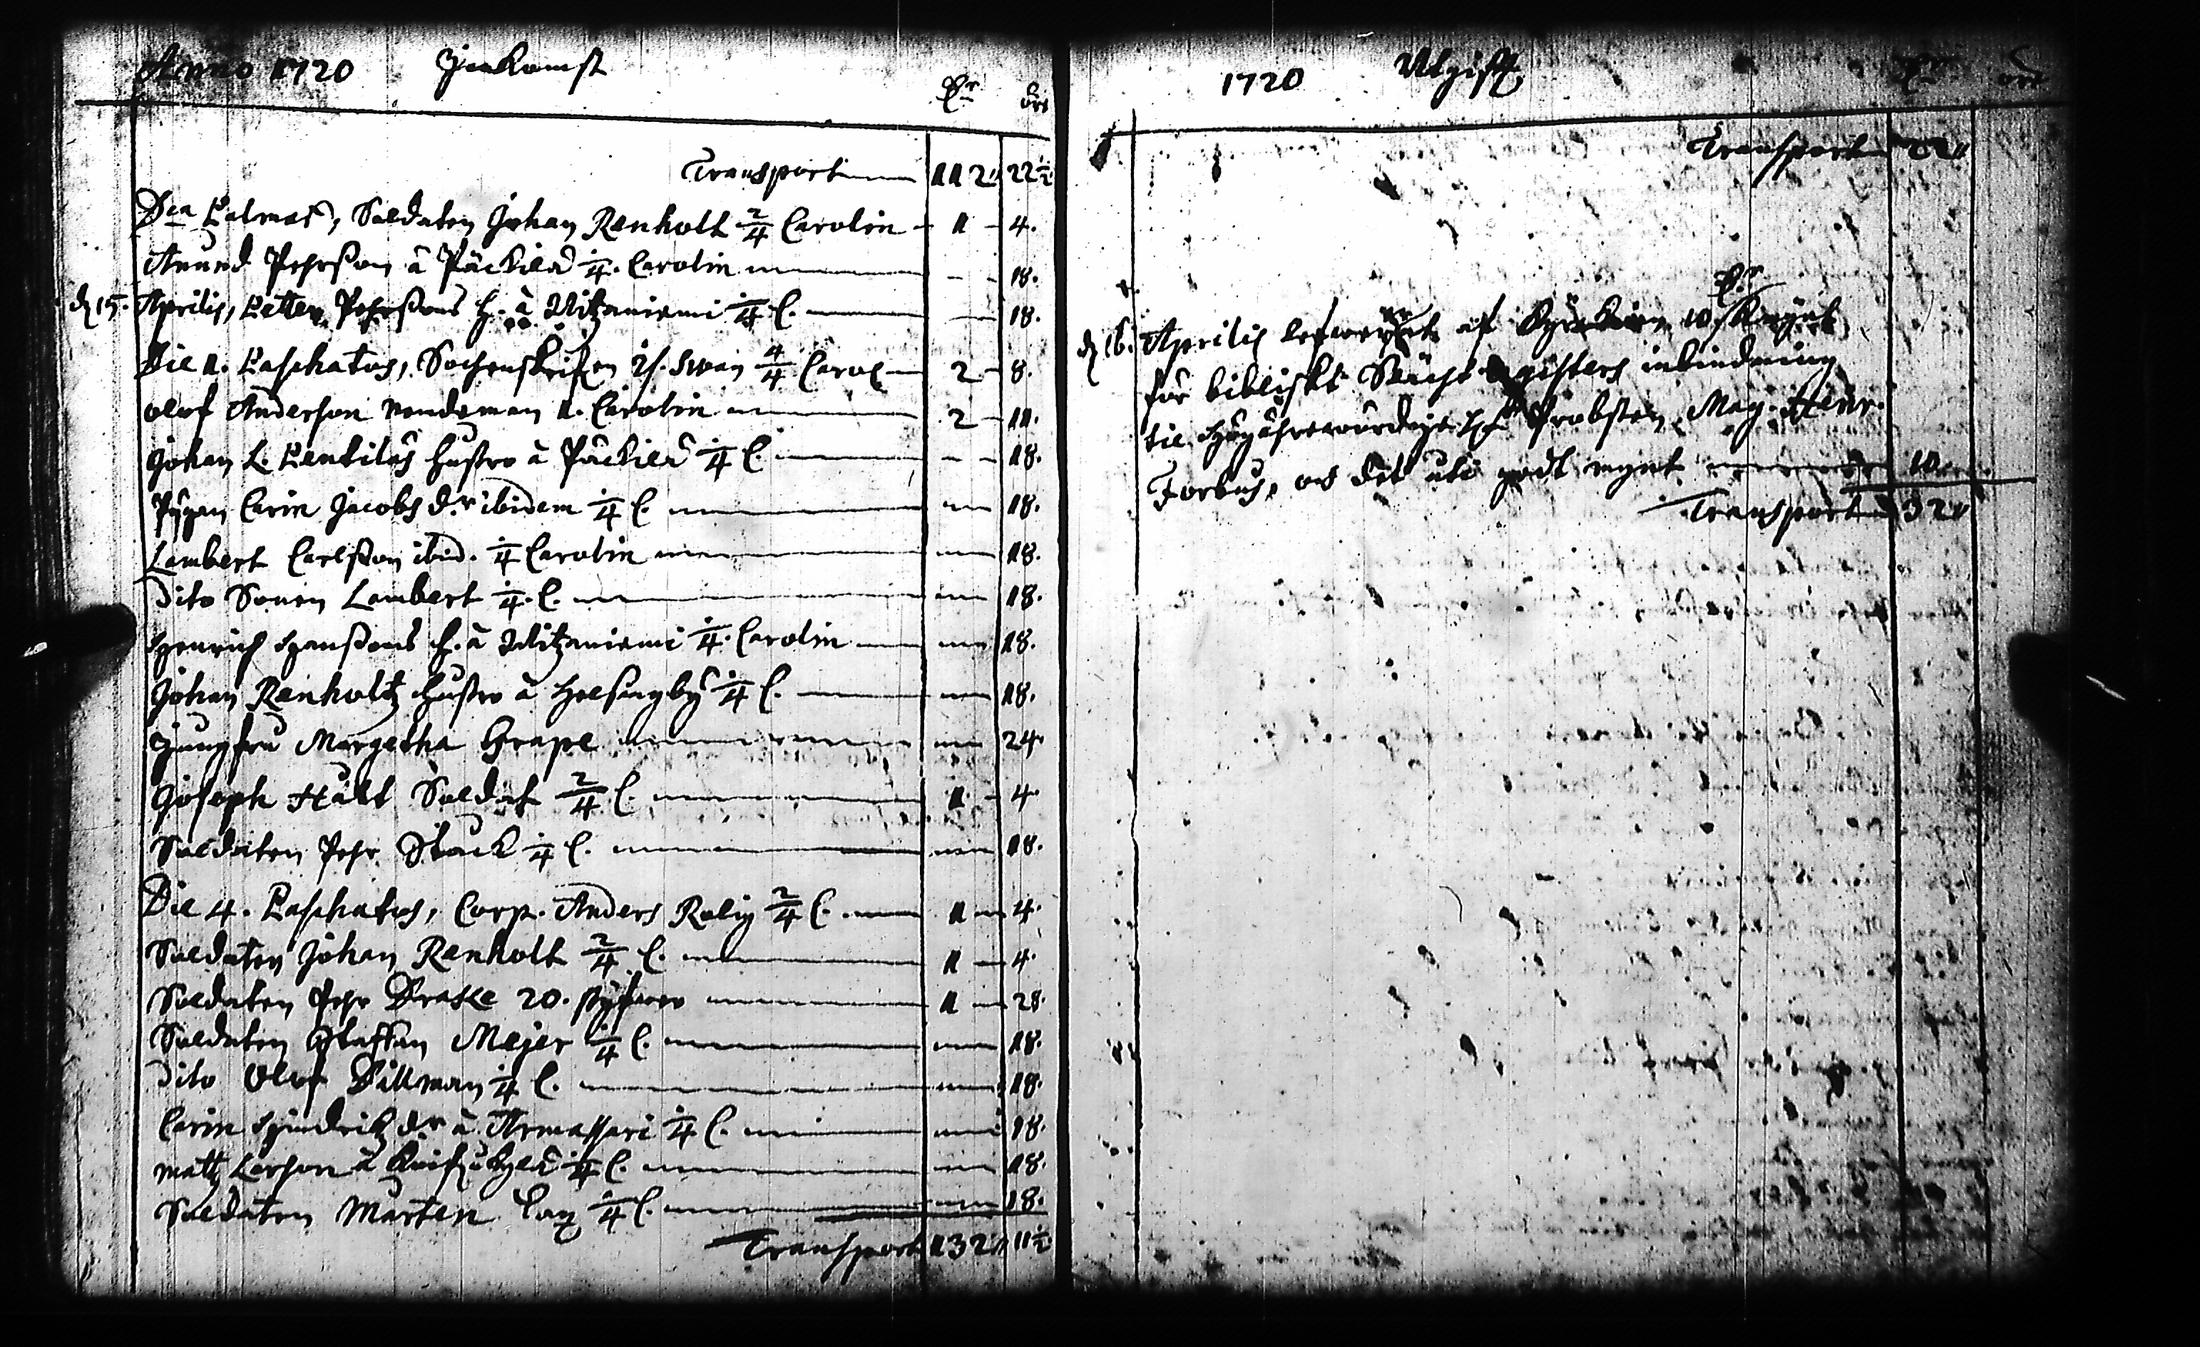 Anno 1720 Inkomst
Dr öre
Transport 112 22½
Dca Palmar, Soldaten Johan Renholt 2/4 Carolin 1 4.
Anund Pehrßon â Päckilä 1/4. Carolin 18.
d 15. Aprilis, Petter Pehrßons h. â Witzaniemi 1/4 C. 18.
Die 1. Paschatos, Sochenskrifen Is. Swan 4/4 Carol 2 8.
Olof Anderson Nendeman 1. Carolin 2 11.
Johan L. Pentilas hustro â Päckilä 1/4 C. 18.
Pigan Carin Jacobs dr ibidem 1/4 C. 18.
Lambert Carlßon ibid. 1/4 Carolin 18.
Dito Sonen Lambert 1/4. C. 18.
Henrich Hanßons h. â Witzaniemi 1/4. Carolin 18.
Johan Renholtz hustro â Helsingby 1/4 C. 18.
Jungfru Margetha Grape 24
Joseph Hält Soldat 2/4 C. 1 4
Soldaten Pehr Stack 1/4 C. 18.
Die 4. Paschatos, Corp. Anders Rolig 2/4 C. 1 4.
Soldaten Johan Renholt 2/4 C. 1 4.
Soldaten Pehr Drake 20. styfwer 1 28.
Soldaten Staffan Mejer 1/4 C. 18.
Dito Olof Dillman 1/4 C. 18.
Carin Hindrichz dr â Armassari 1/4 C. 18.
Matz Larson â 1/4 C. 18.
Soldaten Mårten 1/4 C. 18.
Transport 132 11½
1720 Utgift
Dr öre
Transport 22
d 16. Aprilis lefwererat af Kyrkian 10 Dr K mynt
för bibliskt Registers inbindning
til Högährewördige H. Probsten Mag. Henr.
Forbus, och det uti godt mynt 10
Transport 32